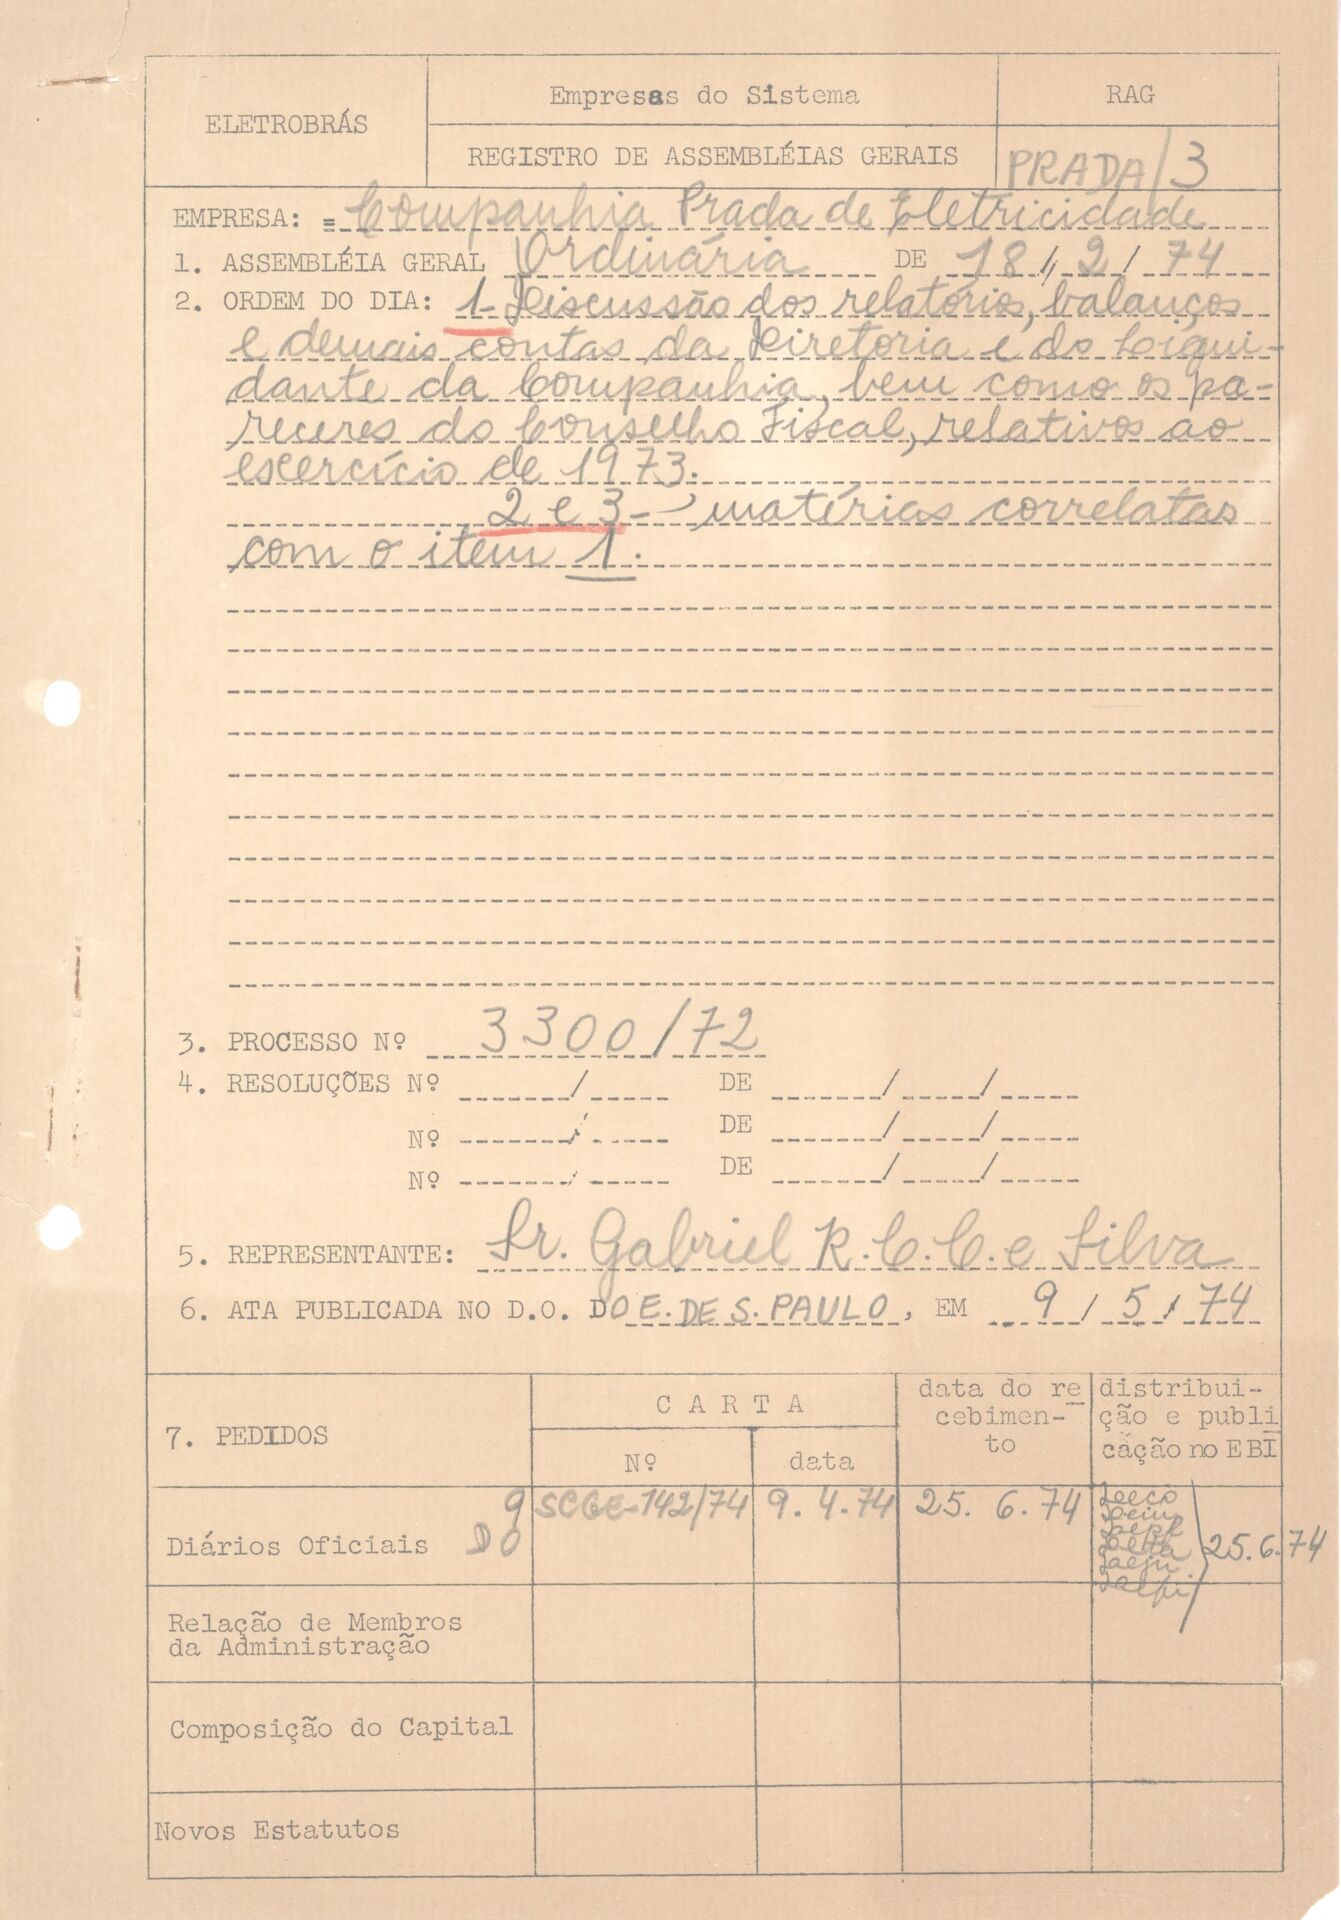 ELETROBRÁS
Empresas do Sistema
RAG
REGISTRO DE ASSEMBLÉIAS GERAIS
PRADA/3
EMPRESA: Companhia Prada de Eletricidade
1. ASSEMBLÉIA GERAL Ordinária DE 18/2/74
2. ORDEM DO DIA: 1- Discussão dos relatórios, balanços
e demais contas da Diretoria e do Liqui-
dante da Companhia, bem como os pa-
receres do Conselho Fiscal, relativos ao
exercício de 1973.
2 e 3 - matérias correlatas
com o item 1.
3. PROCESSO Nº 3300/72
4. RESOLUÇÕES Nº / DE / /
Nº / DE / /
Nº / DE / /
5. REPRESENTANTE: Sr. Gabriel R. C. C. e Silva
6. ATA PUBLICADA NO D.O. DO E. DE S. PAULO, EM 9/5/74
7. PEDIDOS
CARTA
Nº
data
data do re
cebimen-
to
distribui-
ção e publi
cação no EBI
Diários Oficiais 9 DO
SCGE-142/74
9.4.74
25.6.74
25.6.74
Relação de Membros
da Administração
Composição do Capital
Novos Estatutos